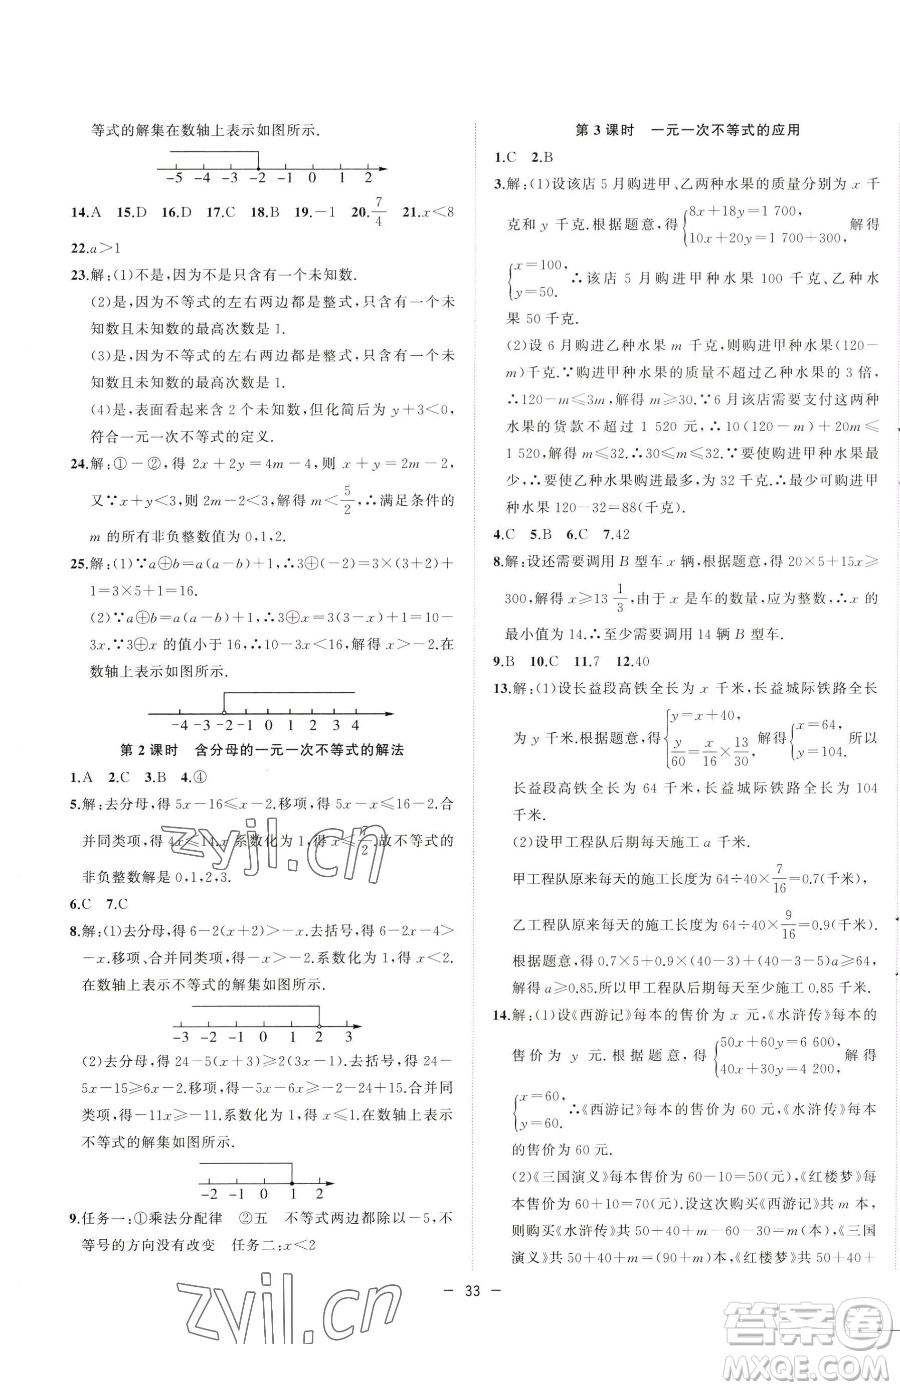 等式的解集在数轴上表示如图所示.
-5 -4 -3 -2 -1 0 1 2
14.A 15.D 16.D 17.C 18.B 19.-1 20.7/4 21.x<8
22.a>1
23.解:(1)不是,因为不是只含有一个未知数.
(2)是,因为不等式的左右两边都是整式,只含有一个未
知数且未知数的最高次数是1.
(3)是,因为不等式的左右两边都是整式,只含有一个未
知数且未知数的最高次数是1.
(4)是,表面看起来含2个未知数,但化简后为y+3<0,
符合一元一次不等式的定义.
24.解:①-②,得2x+2y=4m-4,则x+y=2m-2,
又∵x+y<3,∴2m-2<3,解得m<5/2,∴满足条件的
m的所有非负整数值为0,1,2.
25.解:(1)∵a⊕b=a(a-b)+1,∴3⊕(-2)=3×(3+2)+
1=3×5+1=16.
(2)∵a⊕b=a(a-b)+1,∴3⊕x=3(3-x)+1=10-
3x.∵3⊕x的值小于16,∴10-3x<16,解得x>-2.在
数轴上表示如图所示.
-4 -3 -2 -1 0 1 2 3 4
第2课时 含分母的一元一次不等式的解法
1.A 2.C 3.B 4.④
5.解:去分母,得5x-16≤x-2.移项,得5x-x≤16-2.合
并同类项,得4x≤14.系数化为1,得x≤7/2.故不等式的
非负整数解是0,1,2,3.
6.C 7.C
8.解:(1)去分母,得6-2(x+2)>-x.去括号,得6-2x-4>
-x.移项、合并同类项,得-x>-2.系数化为1,得x<2.
在数轴上表示不等式的解集如图所示.
-3 -2 -1 0 1 2 3
(2)去分母,得24-5(x+3)≥2(3x-1).去括号,得24-
5x-15≥6x-2.移项,得-5x-6x≥-2-24+15.合并同
类项,得-11x≥-11.系数化为1,得x≤1.在数轴上表示
不等式的解集如图所示.
-2 -1 0 1 2 3
9.任务一:①乘法分配律 ②五 不等式两边都除以-5,不
等号的方向没有改变 任务二:x<2
第3课时 一元一次不等式的应用
1.C 2.B
3.解:(1)设该店5月购进甲、乙两种水果的质量分别为x千
克和y千克.根据题意,得{8x+18y=1 700, 10x+20y=1 700+300,解得
{x=100, y=50. ∴该店5月购进甲种水果100千克、乙种水
果50千克.
(2)设6月购进乙种水果m千克,则购进甲种水果(120-
m)千克.∵购进甲种水果的质量不超过乙种水果的3倍,
∴120-m≤3m,解得m≥30.∵6月该店需要支付这两种
水果的货款不超过1 520元,∴10(120-m)+20m≤
1 520,解得m≤32.∴30≤m≤32.∵购进甲种水果最少,
即购进乙种水果最多,为32千克.∴最少可购进甲
种水果120-32=88(千克).
4.C 5.B 6.C 7.42
8.解:设还需要调用B型车x辆,根据题意,得20×5+15x≥
300,解得x≥13 1/3,由于x是车的数量,应为整数,∴x的
最小值为14.∴至少需要调用14辆B型车.
9.B 10.C 11.7 12.40
13.解:(1)设长益段高铁全长为x千米,长益城际铁路全长
为y千米.根据题意,得{y=x+40, y/60=x/16×13/30 解得{x=64, y=104. ∴
长益段高铁全长为64千米,长益城际铁路全长为104
千米.
(2)设甲工程队后期每天施工a千米.
甲工程队原来每天的施工长度为64÷40×7/16=0.7(千米),
乙工程队原来每天的施工长度为64÷40×9/16=0.9(千米),
根据题意,得0.7×5+0.9×(40-3)+(40-3-5)a≥64,解
得a≥0.85.所以甲工程队后期每天至少施工0.85千米.
14.解:(1)设《西游记》每本的售价为x元,《水浒传》每本的
售价为y元.根据题意,得{50x+60y=6 600, 40x+30y=4 200,解得
{x=60, y=60. ∴《西游记》每本的售价为60元,《水浒传》每本
的售价为60元.
(2)《三国演义》每本售价为60-10=50(元),《红楼梦》每
本售价为60+10=70(元).设这次购买《西游记》共m本,
则购买《水浒传》共50+40+m-60-30=m(本),《三国
演义》共50+40+m=(90+m)本,《红楼梦》共50+40+
- 33 -
zyjl.cn
zyjl.cn
答案圈
MXQE.COM